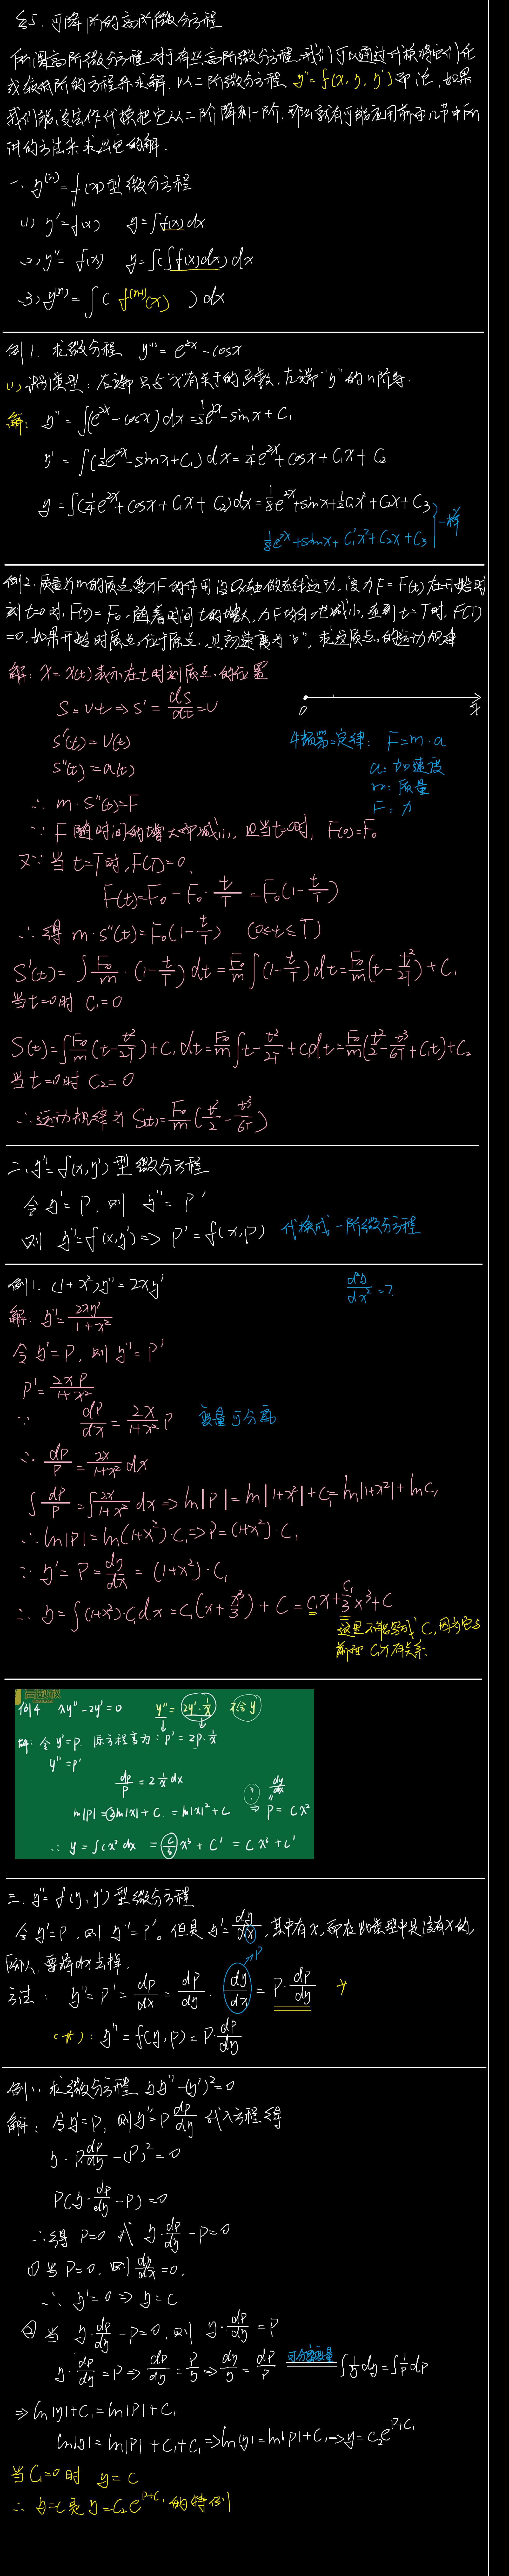 §5. 可降阶的高阶微分方程
所谓高阶微分方程, 对于有些高阶微分方程, 我们可以通过代换将它们化
成较低阶的方程来求解. 以二阶微分方程, y''=f(x,y,y')而论, 如果
我们能设法作代换把它从二阶降到一阶. 那么就有可能应用前面几节中所
讲的方法来求出它的解.
一. y^(n)=f(x)型微分方程
(1) y'=f(x) y=∫f(x)dx
(2) y''=f(x) y=∫(∫f(x)dx)dx
(3) y^(n)=∫( f^(n-1)(x) )dx
例1. 求微分方程 y'''=e^2x-cosx
(1) 识别类型: 右端只与“x”有关于的函数, 左端“y”的n阶导.
解: y''=∫(e^2x-cosx)dx=1/2e^2x-sinx+C₁
y'=∫(1/2e^2x-sinx+C₁)dx=1/4e^2x+cosx+C₁x+C₂
y=∫(1/4e^2x+cosx+C₁x+C₂)dx=1/8e^2x+sinx+1/2C₁x²+C₂x+C₃
1/8e^2x+sinx+C₁'x²+C₂x+C₃ 一样
例2. 质量为m的质点受力F的作用沿Ox轴做直线运动, 设力F=F(t)在开始时
刻t=0时, F(0)=F₀. 随着时间t的增大, 力F均匀地减小, 直到t=T时, F(T)
=0. 如果开始时质点位于原点, 且初速度为“0”, 求这质点的运动规律
解: X=X(t)表示在t时刻质点的位置
S=Vt⇒S'=dS/dt=V
0 x
S'(t)=V(t)
牛顿第二定律: F=m·a
S''(t)=a(t)
a: 加速度
m: 质量
F: 力
∴ m·S''(t)=F
∵ F随时间的增大而减小, 且当t=0时, F(0)=F₀
又∵当t=T时, F(T)=0.
F(t)=F₀-F₀·t/T=F₀(1-t/T)
∴得 m·S''(t)=F₀(1-t/T) (0≤t≤T)
S'(t)=∫F₀/m·(1-t/T)dt=F₀/m∫(1-t/T)dt=F₀/m(t-t²/2T)+C₁
当t=0时 C₁=0
S(t)=∫F₀/m(t-t²/2T)+C₁dt=F₀/m∫t-t²/2T+C₁dt=F₀/m(t²/2-t³/6T+C₁t)+C₂
当t=0时 C₂=0
∴运动规律为 S(t)=F₀/m(t²/2-t³/6T)
二. y''=f(x,y')型微分方程
令y'=P, 则 y''=P'
则 y''=f(x,y')⇒P'=f(x,P) 代换成一阶微分方程
例1. (1+x²)y''=2xy'
d²y/dx²=?
解: y''=2xy'/1+x²
令y'=P, 则y''=P'
P'=2xP/1+x²
∵ dP/dx=2x/1+x² P 变量可分离
∴ dP/P=2x/1+x² dx
∫dP/P=∫2x/1+x² dx⇒ln|P|=ln|1+x²|+C₁=ln|1+x²|+lnC₁
∴ ln|P|=ln(1+x²)·C₁⇒P=(1+x²)·C₁
∵ y'=P=dy/dx=(1+x²)·C₁
∴ y=∫(1+x²)·C₁dx=C₁(x+x³/3)+C=C₁x+C₁/3x³+C
这里不能写成C, 因为它与
前面C₁x有关系.
例4 xy''-2y'=0 y''=2y'·1/x 不含y
解: 令y'=P. 原方程变为: P'=2P·1/x
y''=P'
dp/p=2 1/x dx
ln|P|=2ln|x|+C.=ln|x|²+C ⇒ P=Cx²
∴ y=∫Cx²dx=C/3x³+C'=Cx³+C'
三. y''=f(y,y')型微分方程
令y'=P, 则y''=P'。但是y'=dy/dx, 其中有x, 而在此类型中是没有x的,
所以, 要将dx去掉.
方法: y''=P'=dP/dx=dP/dy·dy/dx=P·dP/dy *
→P
(*): y''=f(y,P)=P·dP/dy
例1: 求微分方程yy''-(y')²=0
解: 令y'=P, 则y''=P dP/dy代入方程得
y·P dP/dy-(P)²=0
P(y·dP/dy-P)=0
∴得P=0或 y·dP/dy-P=0
① 当P=0, 则dy/dx=0,
∴ y'=0⇒y=C
② 当 y·dP/dy-P=0, 则 y·dP/dy=P
y·dP/dy=P⇒dP/dy=P/y⇒dy/y=dP/P 可分离变量 ∫1/y dy=∫1/P dP
⇒ln|y|+C₁=ln|P|+C₁
ln|y|=ln|P|+C₁+C₁⇒ln|y|=ln|P|+C₁⇒y=C₂e^P+C₁
当C₁=0时 y=C
∴ y=C是y=C₂e^P+C₁的特例